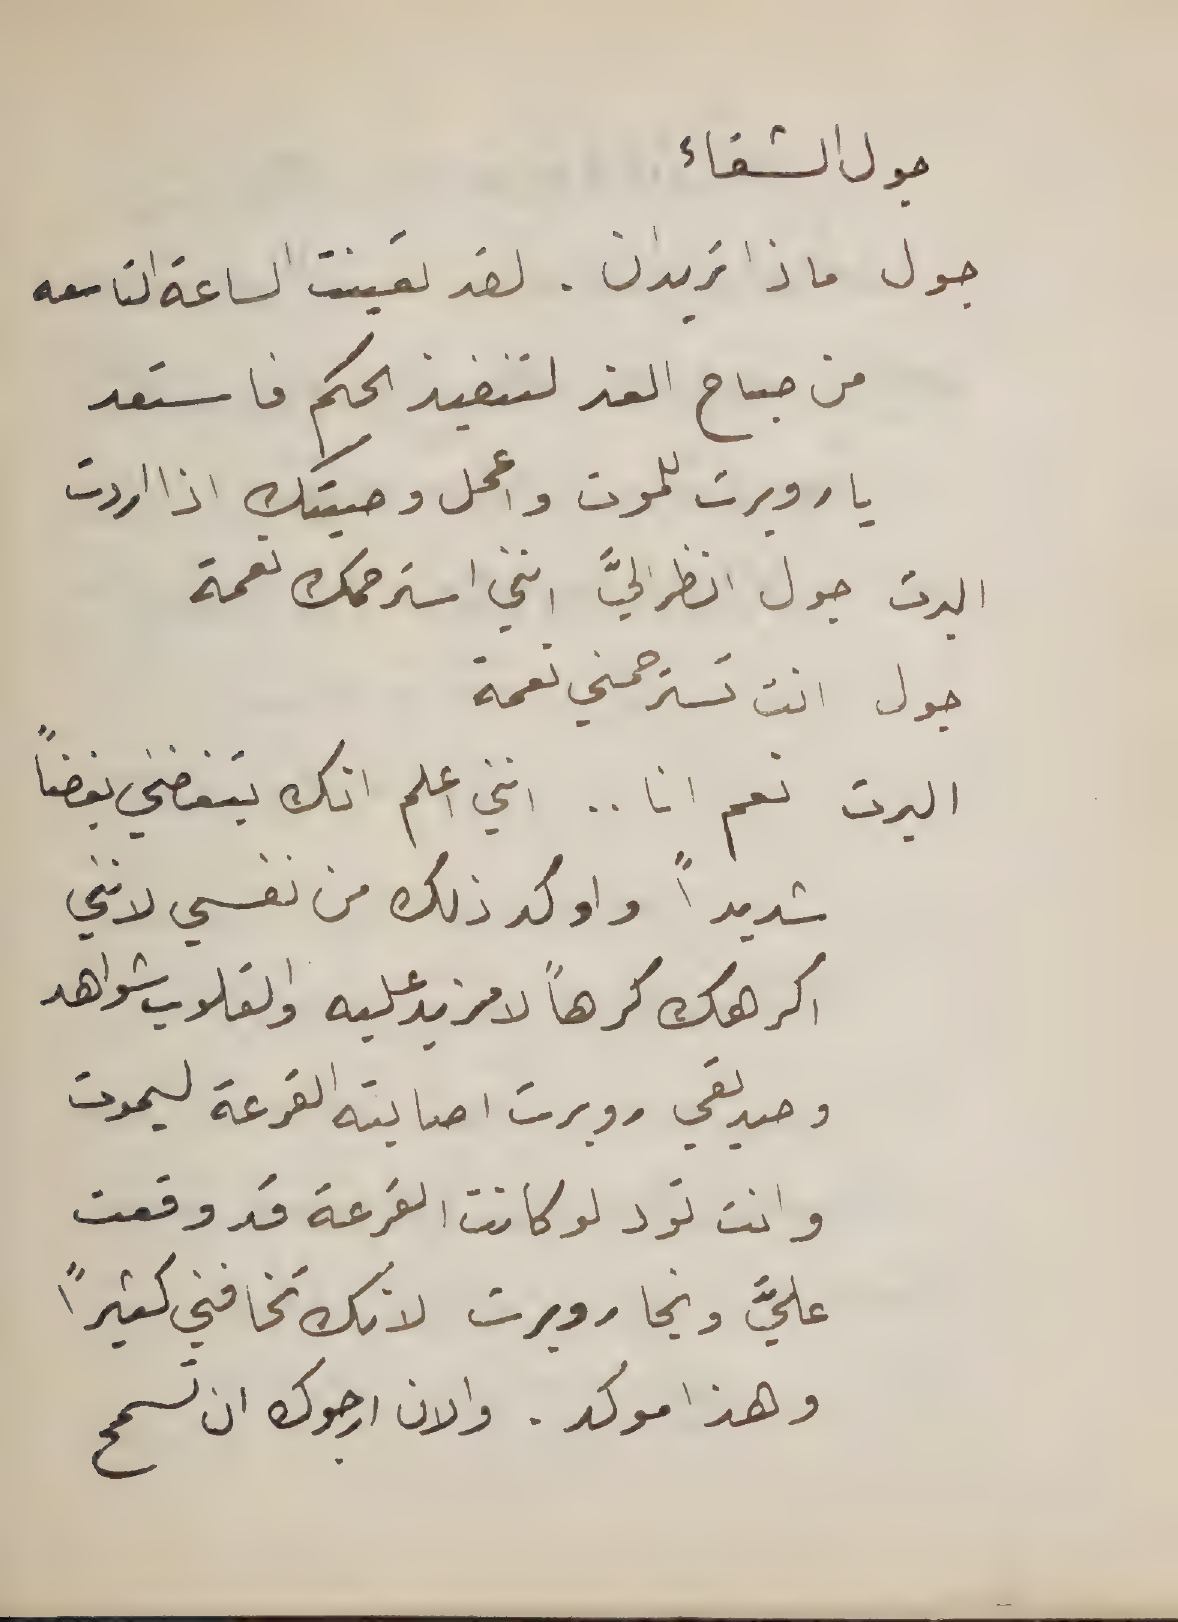 جول الشقاء
جول ماذا تريدان . لقد تعينت الساعة التاسعه
من صباح الغد لتنفيذ الحكم فاستعد
يا روبرت للموت واعمل وصيتك اذا اردت
البرت جول انظر اليَّ انني استرحمك نعمة
جول انت تسترحمني نعمة
البرت نعم انا .. انني اعلم انك تبغضني بغضاً
شديداً واوكد ذلك من نفسي لانني
اكرهك كرهاً لا مزيد عليه والقلوب شواهد
وصديقي روبرت اصابته القرعة ليموت
وانت تود لو كانت القرعة قد وقعت
عليَّ ونجا روبرت لانك تخافني كثيراً
وهذا موكد . والان ارجوك ان تسمح